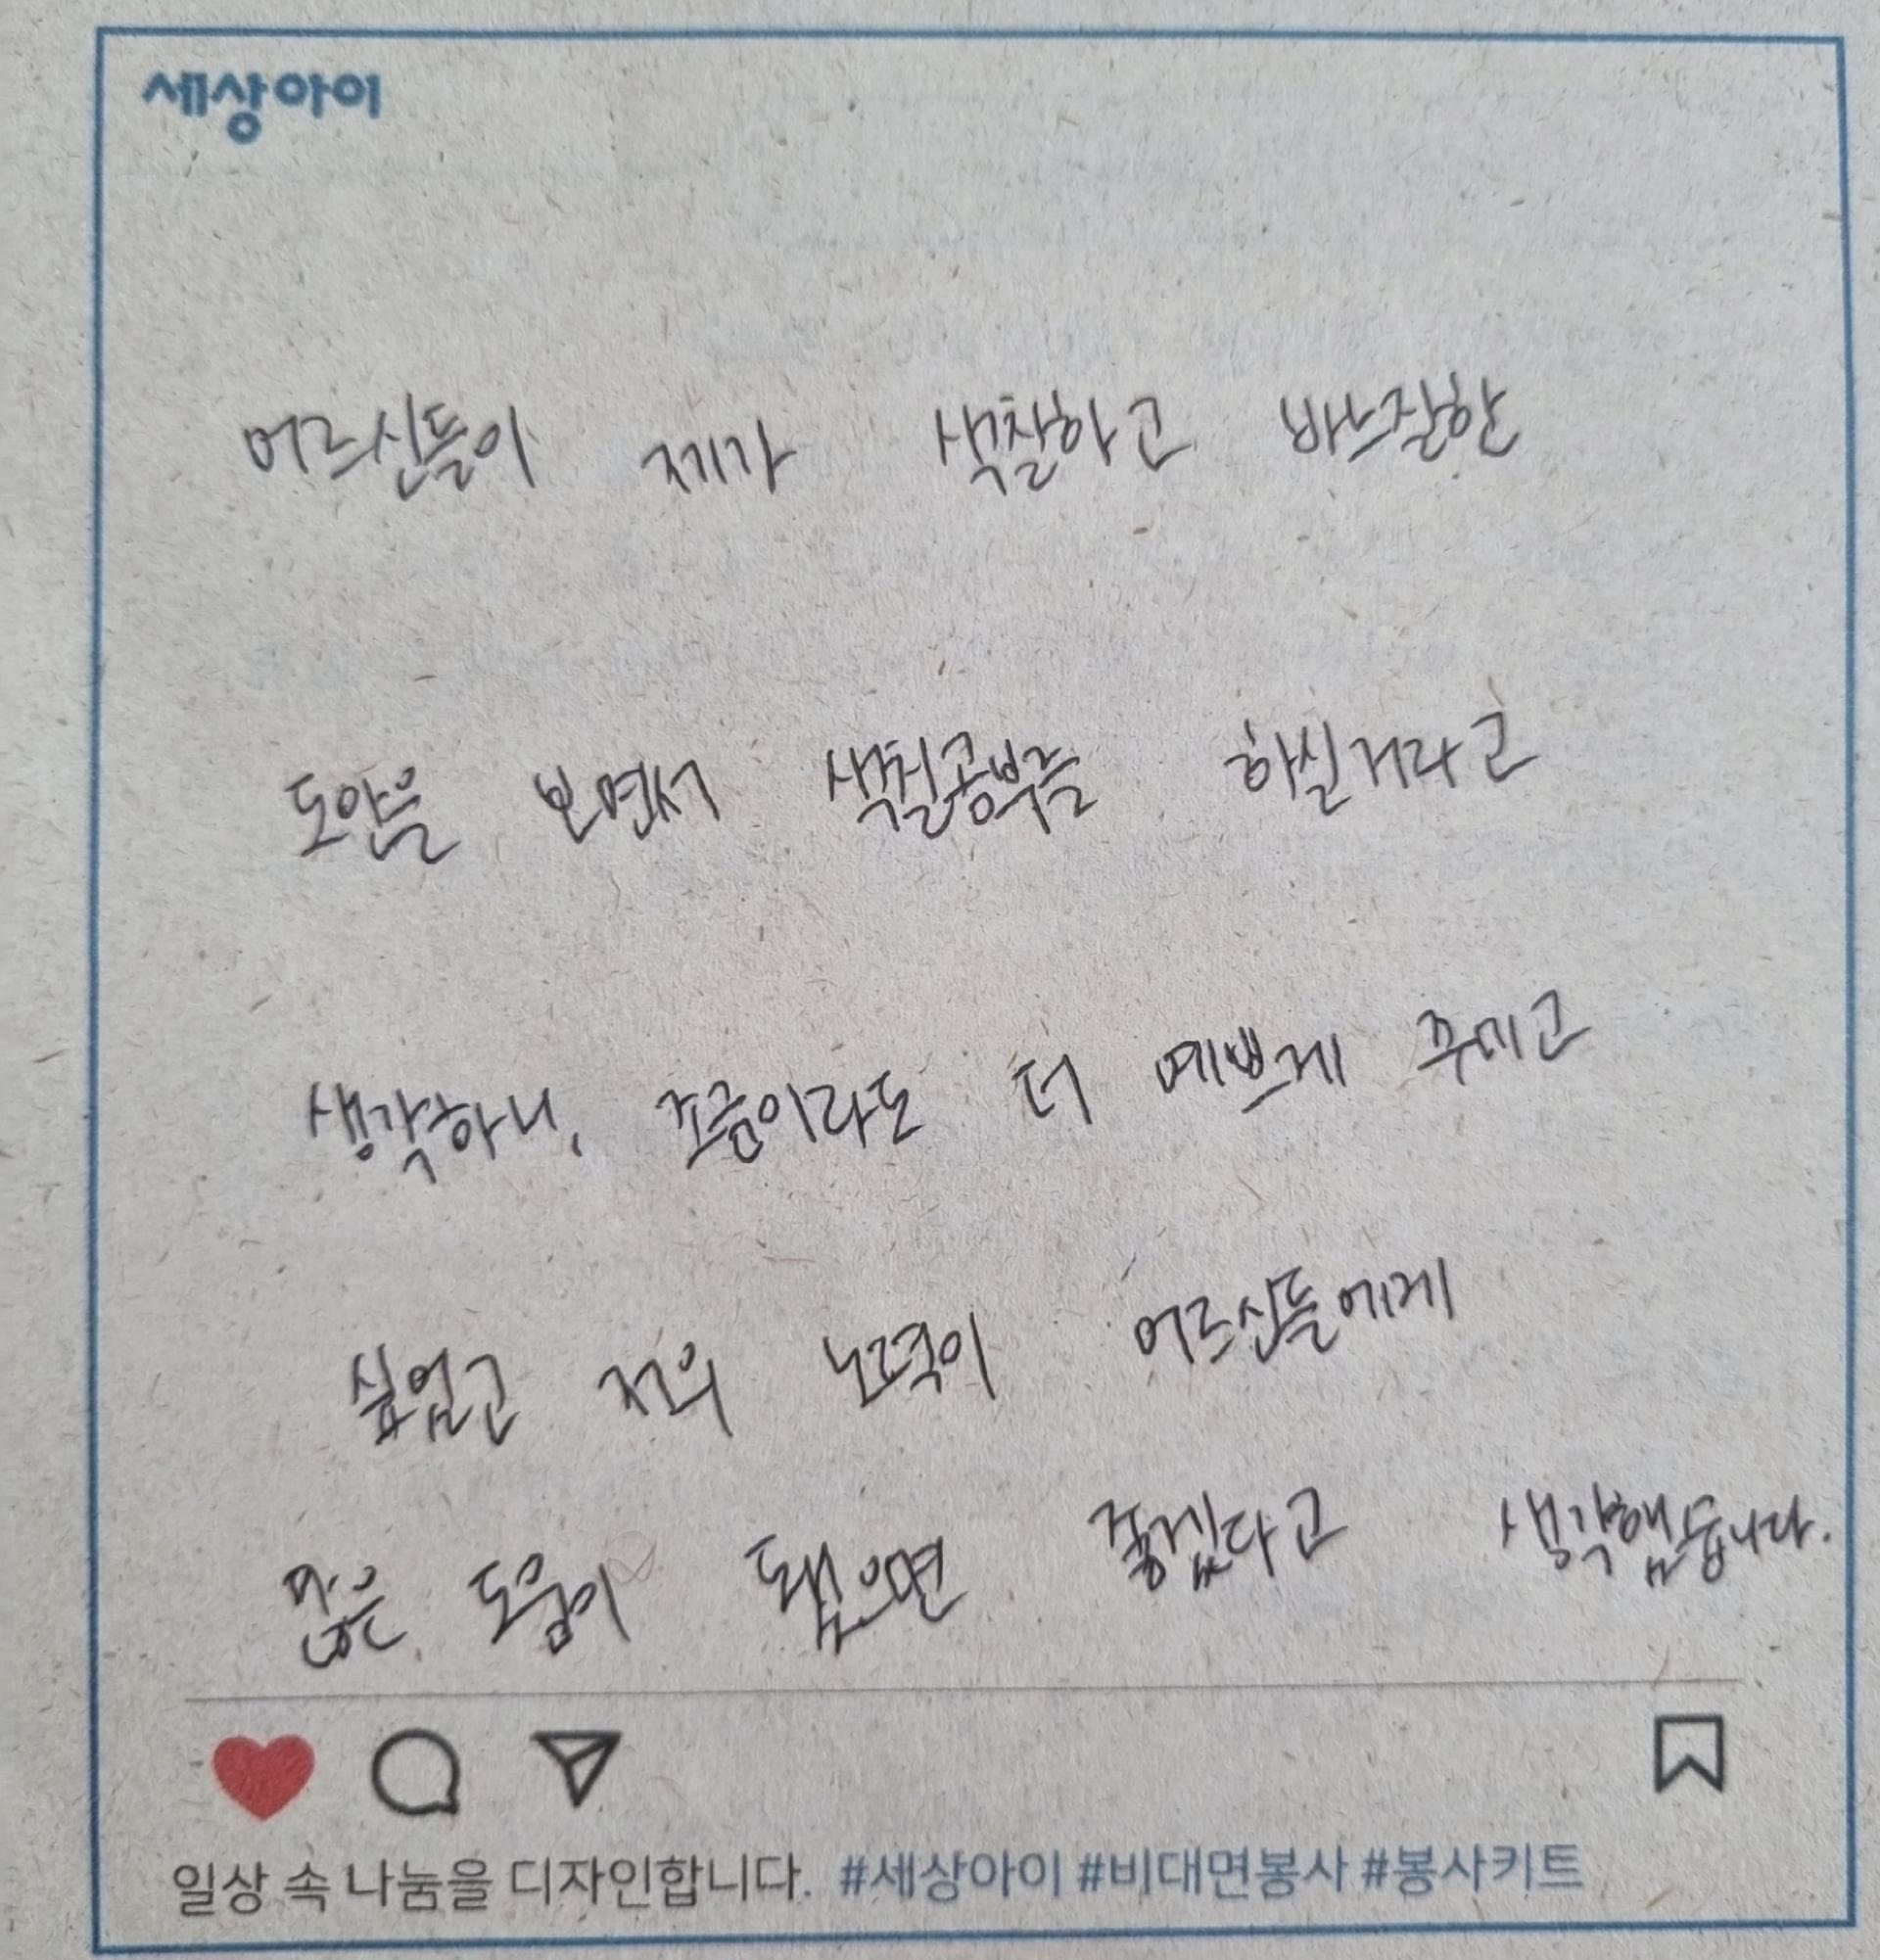 세상아이
어르신들이 제가 색칠하고 바느질한
도안을 보면서 색칠공부를 하실거라고
생각하니, 조금이라도 더 예쁘게 꾸미고
싶었고 저의 노력이 어르신들에게
많은 도움이 됐으면 좋겠다고 생각했습니다.
일상 속 나눔을 디자인합니다. #세상아이 #비대면봉사 #봉사키트